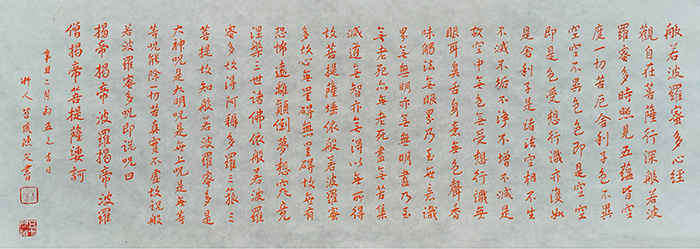 般若波羅蜜多心經
觀自在菩薩行深般若波
羅蜜多時照見五蘊皆空
度一切苦厄舍利子色不異
空空不異色色即是空空
即是色受想行識亦復如
是舍利子是諸法空相不生
不滅不垢不淨不增不減是
故空中無色無受想行識無
眼耳鼻舌身意無色聲香
味觸法無眼界乃至無意識
界無無明亦無無明盡乃至
無老死亦無老死盡無苦集
滅道無智亦無得以無所得
故菩提薩埵依般若波羅蜜
多故心無罣礙無罣礙故無有
恐怖遠離顛倒夢想究竟
涅槃三世諸佛依般若波羅
蜜多故得阿耨多羅三藐三
菩提故知般若波羅蜜多是
大神呪是大明呪是無上呪是無等
等呪能除一切苦真實不虛故說般
若波羅蜜多呪即說呪曰
揭帝揭帝波羅揭帝波羅
僧揭帝菩提薩婆訶
辛丑二月初五之吉日
書